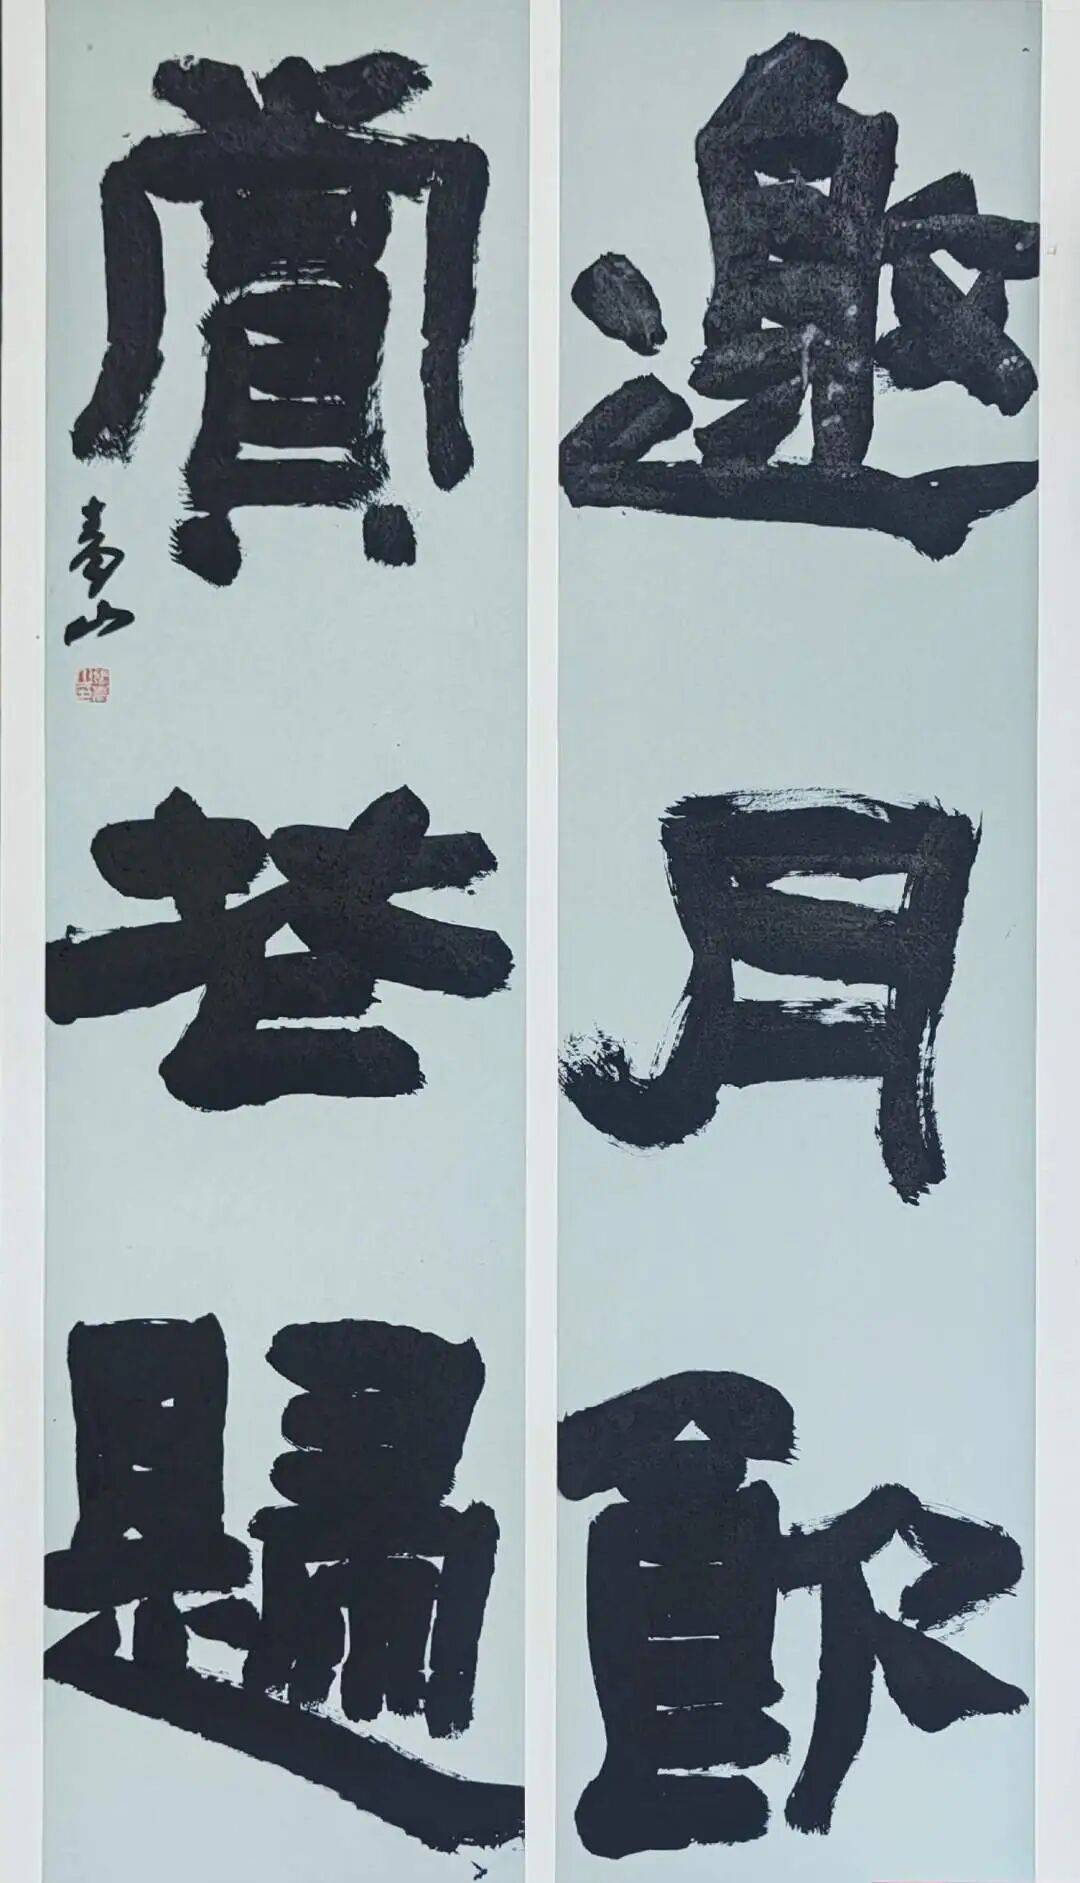 邀月飲
賞花歸
青山